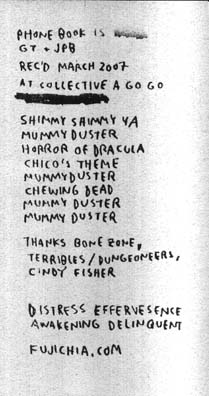 PHONE BOOK IS
GT + JPB
REC'D MARCH 2007
AT COLLECTIVE A GO GO
SHIMMY SHIMMY YA
MUMMY DUSTER
HORROR OF DRACULA
CHICO'S THEME
MUMMYDUSTER
CHEWING DEAD
MUMMY DUSTER
MUMMY DUSTER
THANKS BONE ZONE,
TERRIBLES/DUNGEONEERS,
CINDY FISHER
DISTRESS EFFERVESENCE
AWAKENING DELINQUENT
FUJICHIA.COM